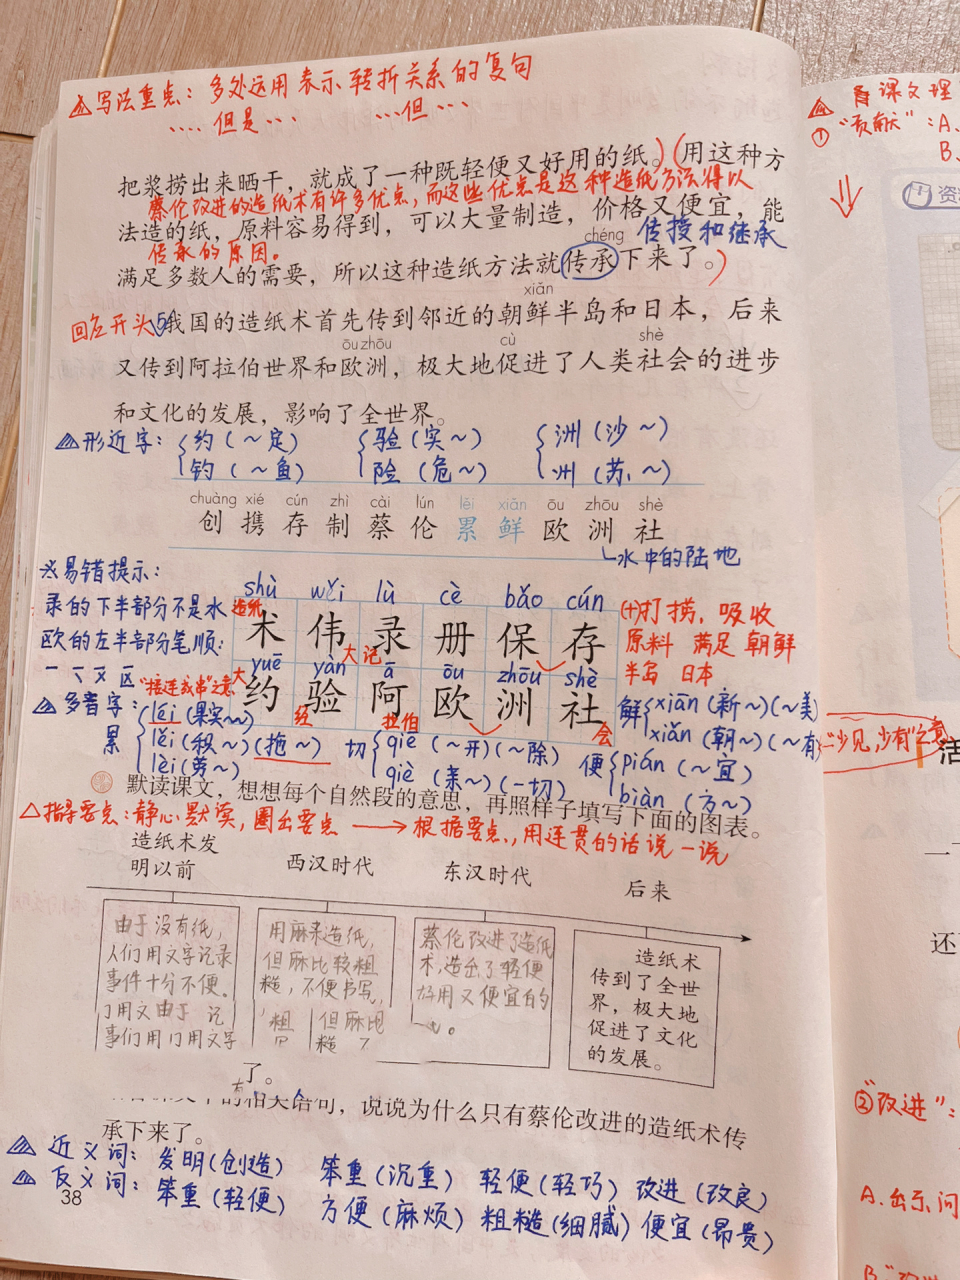 写法重点：多处运用表示转折关系的复句
····但是··· ···但···
把浆捞出来晒干，就成了一种既轻便又好用的纸。(用这种方
蔡伦改进的造纸术有许多优点，而这些优点是这种造纸方法得以
法造的纸，原料容易得到，可以大量制造，价格又便宜，能
传承的原因。
chéng 传授和继承
满足多数人的需要，所以这种造纸方法就传承下来了。)
xiān
回应开头⑤我国的造纸术首先传到邻近的朝鲜半岛和日本，后来
ōu zhōu cù shè
又传到阿拉伯世界和欧洲，极大地促进了人类社会的进步
和文化的发展，影响了全世界。
形近字：{约(～定) {验(实～) {洲(沙～)
钓(～鱼) 险(危～) 州(苏～)
chuàng xié cún zhì cài lún lěi xiān ōu zhōu shè
创 携 存 制 蔡 伦 累 鲜 欧 洲 社
水中的陆地
※易错提示：
录的下半部分不是水
欧的左半部分笔顺：
一 ㄱ 又 区
shù wěi lù cè bǎo cún
造纸
术 伟 录 册 保 存
大 记
yuē yàn ā ōu zhōu shè
大
约 验 阿 欧 洲 社
经 拉伯 会
(十)打捞，吸收
原料 满足 朝鲜
半岛 日本
"接连成串"之意
多音字：
累{léi(果实～～)
lěi(积～)(拖～)
lèi(劳～)
切{qiē(～开)(～除)
qiè(亲～)(一切)
鲜{xiān(新～)(～美)
xiǎn(朝～)(～有)
"少见，少有"之意
便{pián(～宜)
biàn(方～)
默读课文，想想每个自然段的意思，再照样子填写下面的图表。
△指导要点：静心默读，圈出要点→根据要点，用连贯的话说一说
造纸术发
明以前
西汉时代
东汉时代
后来
由于没有纸，
人们用文字记录
事件十分不便。
用麻来造纸，
但麻比较粗
糙，不便书写，
蔡伦改进了造纸
术，造出了轻便
好用又便宜的
造纸术
传到了全世
界，极大地
促进了文化
的发展。
了。
的相关语句，说说为什么只有蔡伦改进的造纸术传
承下来了。
近义词：发明(创造) 笨重(沉重) 轻便(轻巧) 改进(改良)
反义词：笨重(轻便) 方便(麻烦) 粗糙(细腻) 便宜(昂贵)
38
课文理
①"贡献"：A.
B.
资料
活
一
还
②"改进"：
A.出示问
B.